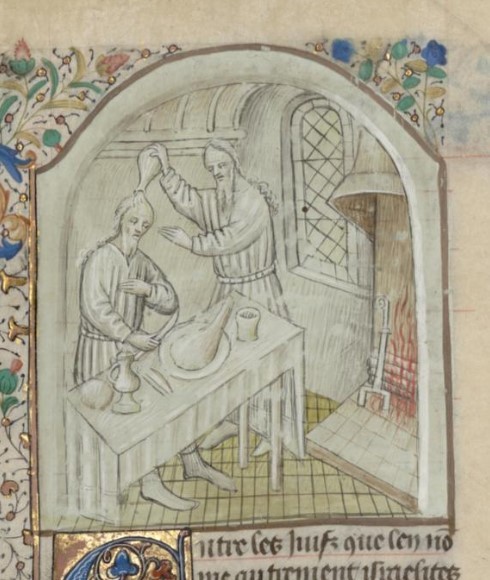 Entre les Juifz que len nō
me autrement israelites